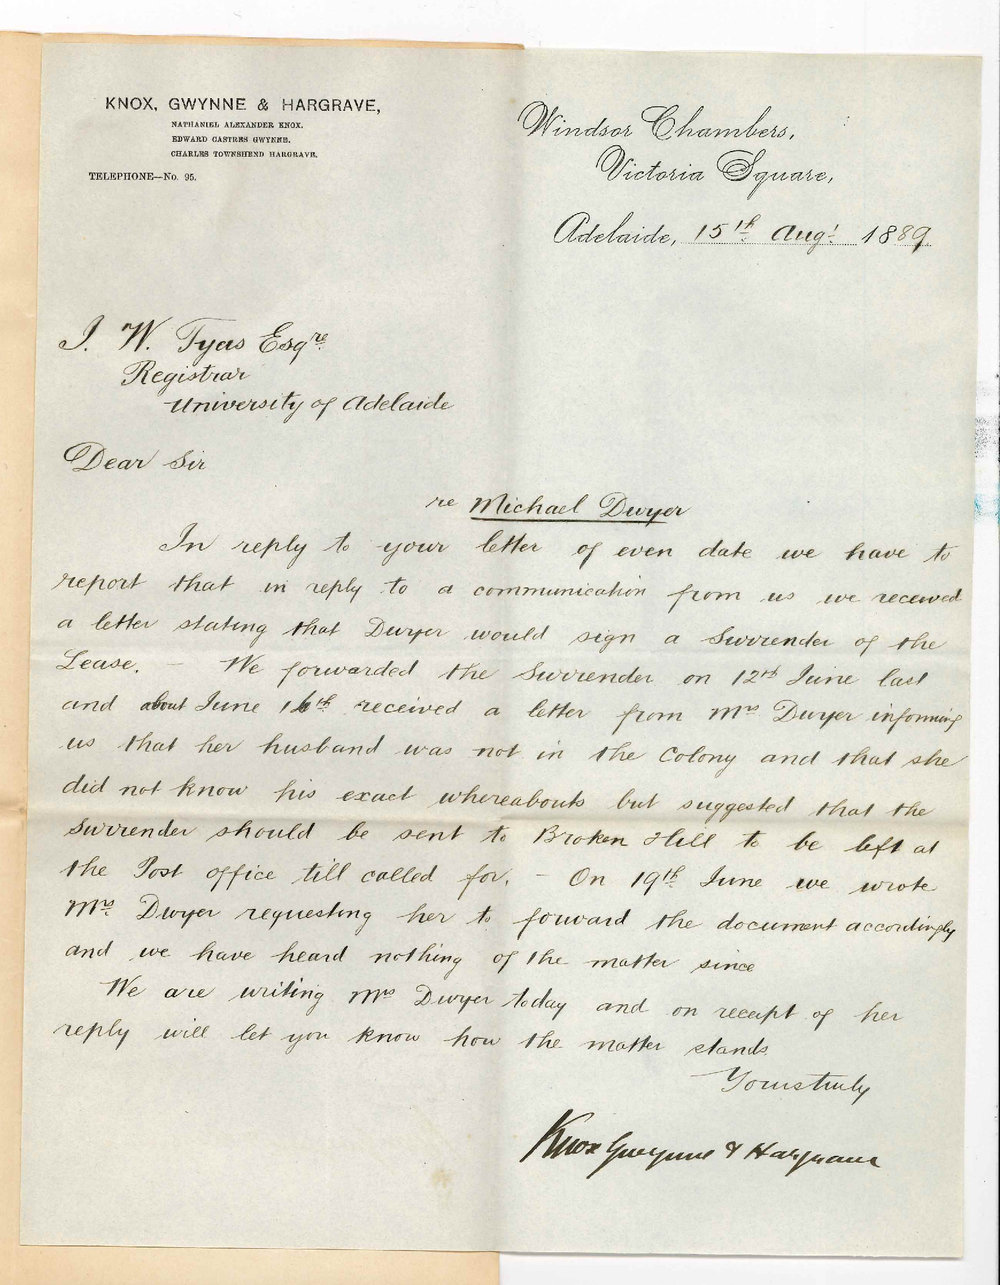 KNOX, GWYNNE & HARGRAVE,
NATHANIEL ALEXANDER KNOX.
EDWARD CASTRES GWYNNE.
CHARLES TOWNSHEND HARGRAVE.
TELEPHONE—No. 95.
Windsor Chambers,
Victoria Square,
Adelaide, 15th Augt 1889.
J. W. Tyas Esqre
Registrar
University of Adelaide
Dear Sir
re Michael Dwyer
In reply to your letter of even date we have to
report that in reply to a communication from us we received
a letter stating that Dwyer would sign a Surrender of the
Lease. – We forwarded the Surrender on 12th June last
and about June 16th received a letter from Mrs Dwyer informing
us that her husband was not in the Colony and that she
did not know his exact whereabouts but suggested that the
Surrender should be sent to Broken Hill to be left at
the Post office till called for. – On 19th June we wrote
Mrs. Dwyer requesting her to forward the document accordingly
and we have heard nothing of the matter since
We are writing Mrs Dwyer today and on receipt of her
reply will let you know how the matter stands.
Yours truly
Knox Gwynne & Hargrave